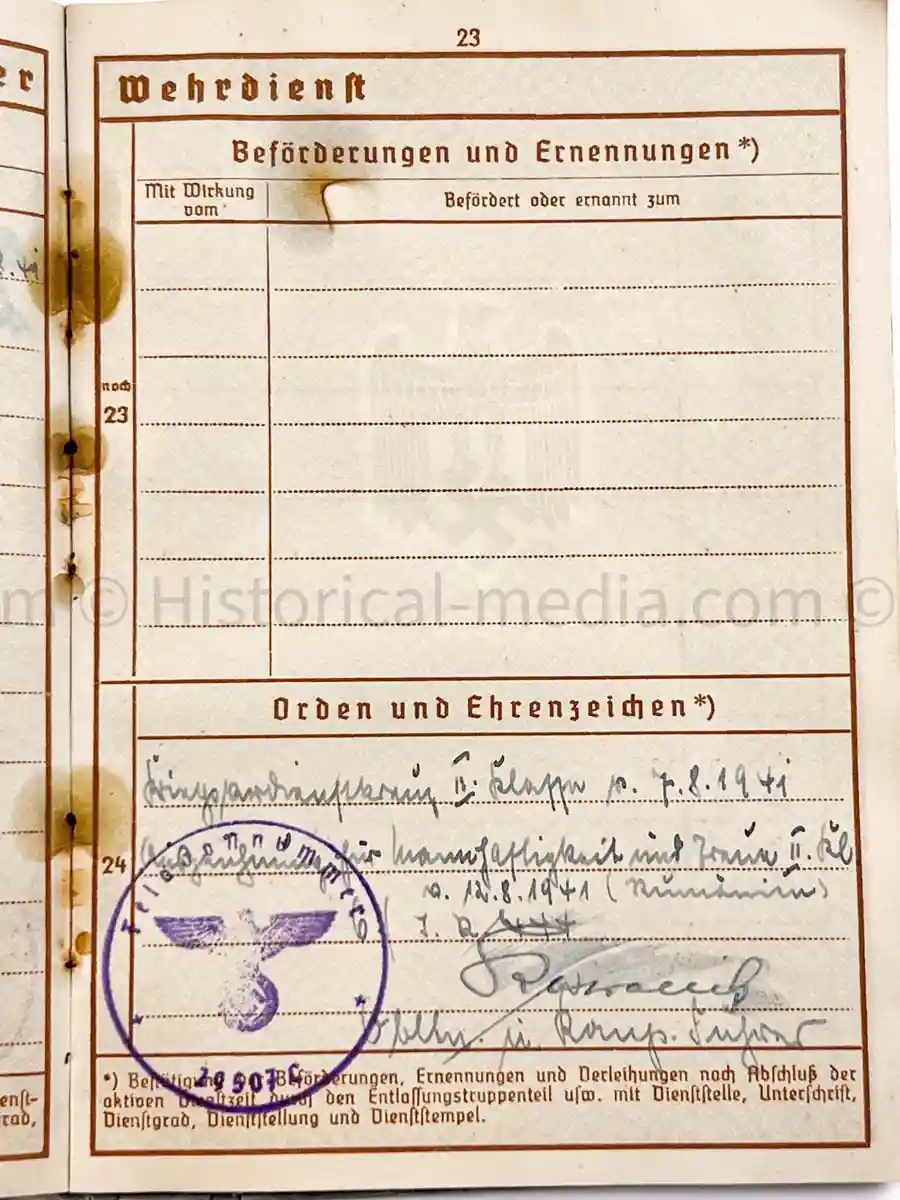 23
er
Wehrdienst
Beförderungen und Ernennungen *)
Mit Wirkung vom
Befördert oder ernannt zum
.41
noch
23
m © Historical-media.com ©
Orden und Ehrenzeichen *)
Kriegsverdienstkreuz II. Klasse v. 7.8.1941
24
Auszeichnung für Mannhaftigkeit und Treue II. Kl
v. 12.8.1941 (Rumänien)
J. R.
Oblt. u. Komp. Führer
Feldpostnummer
29507 C
*) Bestätigung von Beförderungen, Ernennungen und Verleihungen nach Abschluß der
aktiven Dienstzeit durch den Entlassungstruppenteil usw. mit Dienststelle, Unterschrift,
Dienstgrad, Dienststellung und Dienststempel.
enst-
rad,